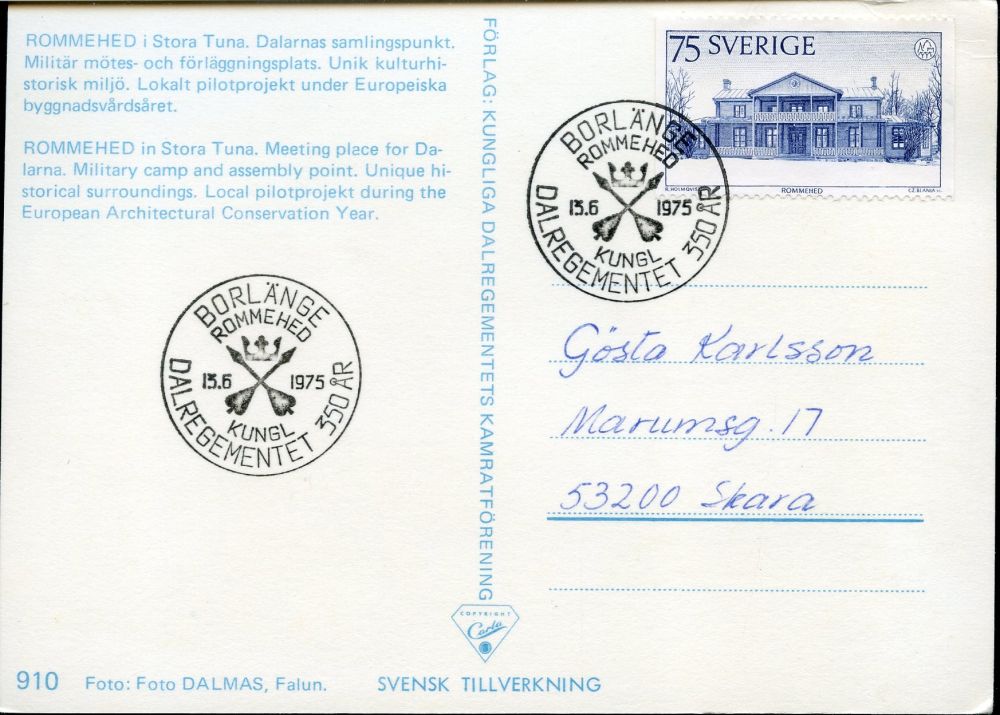 ROMMEHED i Stora Tuna. Dalarnas samlingspunkt.
Militär mötes- och förläggningsplats. Unik kulturhi-
storisk miljö. Lokalt pilotprojekt under Europeiska
byggnadsvårdsåret.
ROMMEHED in Stora Tuna. Meeting place for Da-
larna. Military camp and assembly point. Unique hi-
storical surroundings. Local pilotprojekt during the
European Architectural Conservation Year.
BORLÄNGE
ROMMEHED
13.6 1975
KUNGL
DALREGEMENTET 350 ÅR
FÖRLAG: KUNGLIGA DALREGEMENTETS KAMRATFÖRENING
COPYRIGHT
Carla
75 SVERIGE
ROMMEHED
CZ.SLANIA
BORLÄNGE
ROMMEHED
13.6 1975
KUNGL
DALREGEMENTET 350 ÅR
Gösta Karlsson
Marumsg. 17
53200 Skara
910 Foto: Foto DALMAS, Falun. SVENSK TILLVERKNING